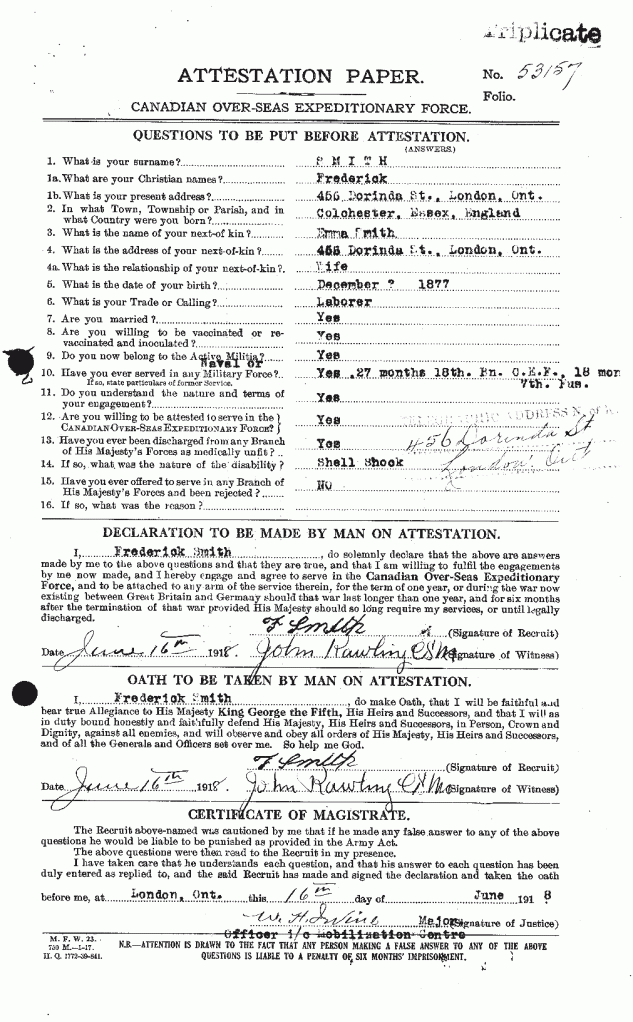 Triplicate
ATTESTATION PAPER.
No. 53157
Folio.
CANADIAN OVER-SEAS EXPEDITIONARY FORCE.
QUESTIONS TO BE PUT BEFORE ATTESTATION.
(ANSWERS.)
1. What is your surname?..... S M I T H
1a. What are your Christian names?..... Frederick
1b. What is your present address?..... 456 Dorinda St., London, Ont.
2. In what Town, Township or Parish, and in
what Country were you born?..... Colchester, Essex, England
3. What is the name of your next-of kin?..... Emma Smith
4. What is the address of your next-of-kin?..... 456 Dorinda St., London, Ont.
4a. What is the relationship of your next-of-kin?. Wife
5. What is the date of your birth?..... December ? 1877
6. What is your Trade or Calling?..... Laborer
7. Are you married?..... Yes
8. Are you willing to be vaccinated or re-
vaccinated and inoculated?..... Yes
9. Do you now belong to the Active Militia?..... Yes
Naval or
10. Have you ever served in any Military Force?.. Yes .27 months 18th. Bn. C.E.F., 18 mon
If so, state particulars of former Service. 7th. Fus.
11. Do you understand the nature and terms of
your engagement?..... Yes
12. Are you willing to be attested to serve in the }
CANADIAN OVER-SEAS EXPEDITIONARY FORCE? } Yes
ADDRESS
456 Dorinda St
13. Have you ever been discharged from any Branch
of His Majesty's Forces as medically unfit?.. Yes
London Ont
14. If so, what was the nature of the disability? Shell Shock
15. Have you ever offered to serve in any Branch of
His Majesty's Forces and been rejected?..... No
16. If so, what was the reason?.....
DECLARATION TO BE MADE BY MAN ON ATTESTATION.
I,..... Frederick Smith....., do solemnly declare that the above are answers
made by me to the above questions and that they are true, and that I am willing to fulfil the engagements
by me now made, and I hereby engage and agree to serve in the Canadian Over-Seas Expeditionary
Force, and to be attached to any arm of the service therein, for the term of one year, or during the war now
existing between Great Britain and Germany should that war last longer than one year, and for six months
after the termination of that war provided His Majesty should so long require my services, or until legally
discharged.
F Smith (Signature of Recruit)
Date June 16th 1918. John Rawling CSM (Signature of Witness)
OATH TO BE TAKEN BY MAN ON ATTESTATION.
I,..... Frederick Smith....., do make Oath, that I will be faithful and
bear true Allegiance to His Majesty King George the Fifth, His Heirs and Successors, and that I will as
in duty bound honestly and faithfully defend His Majesty, His Heirs and Successors, in Person, Crown and
Dignity, against all enemies, and will observe and obey all orders of His Majesty, His Heirs and Successors,
and of all the Generals and Officers set over me. So help me God.
F Smith (Signature of Recruit)
Date June 16th 1918. John Rawling CSM (Signature of Witness)
CERTIFICATE OF MAGISTRATE.
The Recruit above-named was cautioned by me that if he made any false answer to any of the above
questions he would be liable to be punished as provided in the Army Act.
The above questions were then read to the Recruit in my presence.
I have taken care that he understands each question, and that his answer to each question has been
duly entered as replied to, and the said Recruit has made and signed the declaration and taken the oath
before me, at London, Ont. this 16th day of June 1918
W. H. Irvine Major (Signature of Justice)
Officer i/c Mobilization Centre
M. F. W. 23.
750 M.-1-17.
H. Q. 1772-39-841.
N.B.-ATTENTION IS DRAWN TO THE FACT THAT ANY PERSON MAKING A FALSE ANSWER TO ANY OF THE ABOVE
QUESTIONS IS LIABLE TO A PENALTY OF SIX MONTHS' IMPRISONMENT.